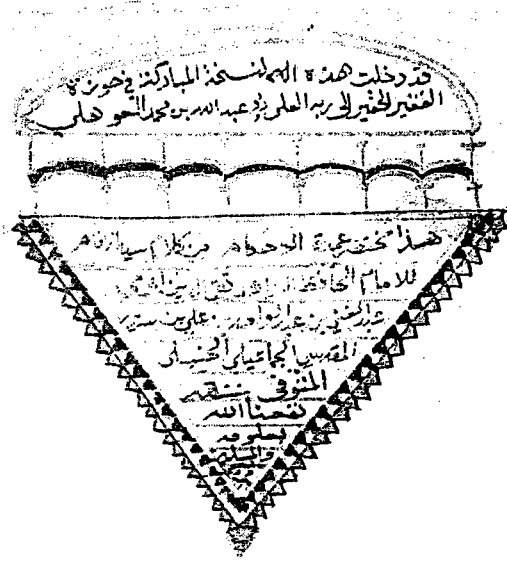 قد دخلت هذه النسخة المباركة في حوزة
الفقير الحقير إلى ربه العلي عبد الله بن محمد
هذا مختصر عمدة الاحكام من كلام سيد الانام
للامام الحافظ تقي الدين
عبد الغني بن عبد الواحد بن علي بن سرور
المقدسي الجماعيلي الحنبلي
المتوفى سنة
نفعنا الله
بعلومه
والمسلمين